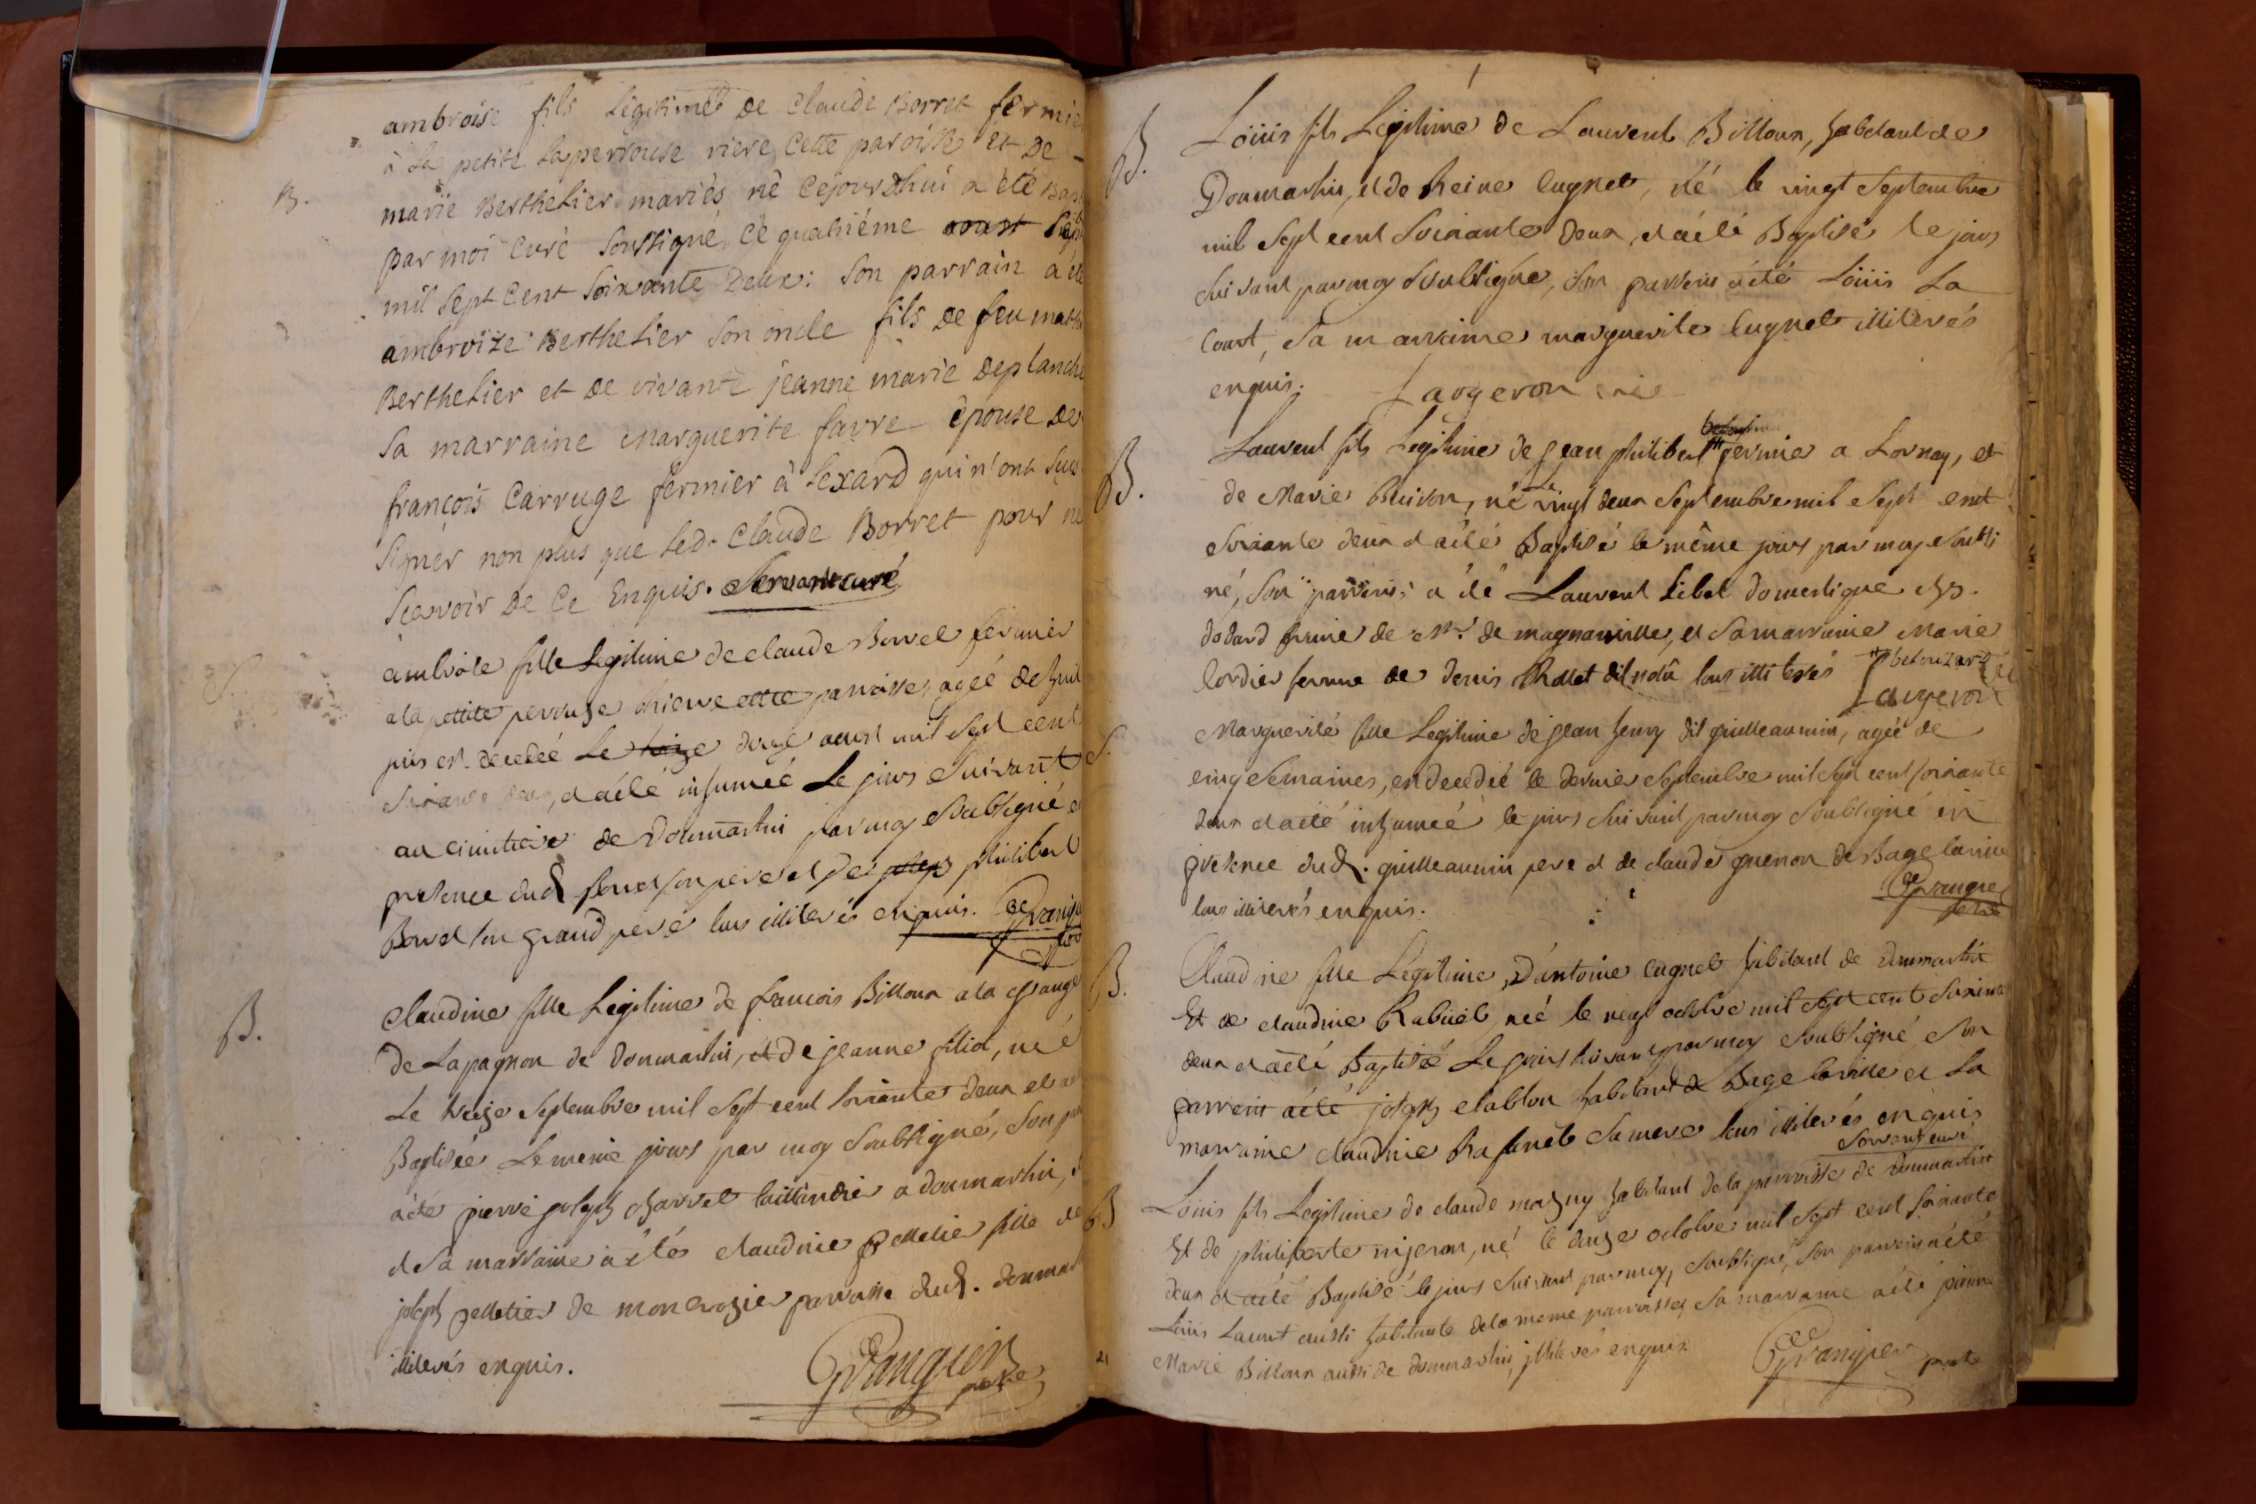 B.
ambroise fils Légitime de Claude Borret fermie
à La petite Laperrouse riere Cette paroisse et De
marie Berthelier mariés né Cejourdhui a été Bap
par moi Curé soussigné, Ce quatriéme aoust
mil sept Cent soixante Deux: son parrain a été
ambroize Berthelier son oncle fils De feu math
Berthelier et De vivante jeanne marie Deplanche
Sa marraine Marguerite favre épouse De
françois Carruge fermier à Lexard qui n'ont sçus
signer non plus que Led. Claude Borret pour ne
sçavoir De Ce Enquis. Servant curé
S.
ambroise fille Legitime de claude Borret fermier
a la petite perouze rierre cette parroisse, agéé de huit
jours est décédéé Le treize douze aoust mil sept cent
soixante deux, et a été inhuméé Le jours suivant
au cimitiere de Donmartin par moy soubsigné e
presence dud. borret son pere et de joseph philibert
Borret son grand pere tous illiterés enquis. Grangier
B.
Claudine fille Legitime de francois Billoux a la grange
de Lapagnon de donmartin, et de jeanne fillid, né é
Le treize septembre mil sept cent soixante deux et a
Baptiséé Le meme jours par moy soubsigné, son pa
a été pierre joseph charvet taillandié a donmartin,
et sa marraine a étés claudine pelletié fille de
joseph pelletier de moncrozier parroisse dud. donmar
illiterés enquis.
Grangier
ptre
B.
Loüis fils Legitime de Laurent Billoux, habitant de
Donmartin, et de Reine Cugnet, né le vingt septembre
mil sept cent soixante deux, et a été Baptisé le jours
suivant par moy soubsigne, son parrein a été Loüis La
Court, sa marraine marguerite Cugnet illiterés
enquis. Largeron
B.
Laurent fils Legitime de jean philibert # fermie a Lornay, et
de Marie Buison, né Le vingt deux septembre mil sept cent
soixante deux et a été Baptisé le même jours par moy soussi
né, son parrein a été Laurent Libet domestique chez
dodard fermie de Mr. de magnanville, et sa marraine Marie
Cordier femme de denis Rollet dit nolu tous illiterés # betouzard
Largeron
S.
Marguerite fille Legitime de jean henry dit guilleaumin, agéé de
cinq semaines, en decedéé le dernier septembre mil sept cent soixante
deux et a été inhuméé le jours suivant par moy soubsigné en
presence dud. guilleaumin pere et de claude guenon de Bage laville
tous illiterés enquis. Grangier
ptre
B.
Claudine fille Legitime, d'antoine cugnet habitant de Donmartin
Et de claudine Rabuel, néé le neuf octobre mil sept cent soixante
deux et a été Baptiséé Le jours suivant par moy soubsigné son
parrein a été joseph chablon habitant de Bage laville et La
marraine claudine Rafanet sa mere tous illiterés enquis
Servant curé
B
Loüis fils Legitime de claude mathuy habitant de la parroisse de Donmartin
Et de philiberte nigeron, né le onze octobre mil sept cent soixante
deux et a été Baptisé le jours suivant par moy, soubsigné, son parrein a été
Loüis Laurent aussi habitante de la meme parroisse, sa marraine a été pierre
Marie Billoux aussi de donmartin, illiterés enquis
Grangier ptre
21